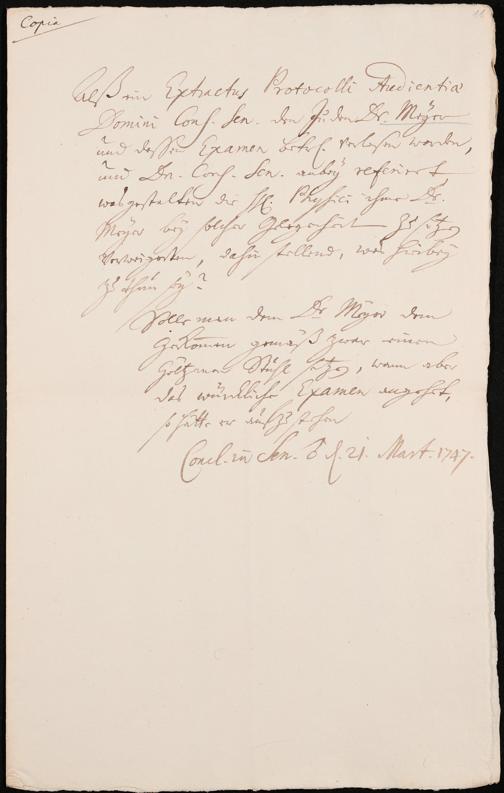 Copia
Alß ein Extractus Protocolli Audientiæ
Domini Cons. Sen. den Juden Dr. Meyer
und deßen Examen betr. verlesen worden,
und Dn. Cons. Sen. anbey referirt
was gestalten die HH. Physici ihme Dr.
Meyer bey solcher Gelegenheit zu sitzen
verweigerten, dahin stellend, was hierbey
zu thun sey?
Solle man dem Dr. Meyer dem
Herkommen gemäß zwar einen
höltzernen Stuhl setzen, wann aber
das würckliche Examen angehet,
so hätte er aufzustehen
Concl. in Sen. d. 21. Mart. 1747.